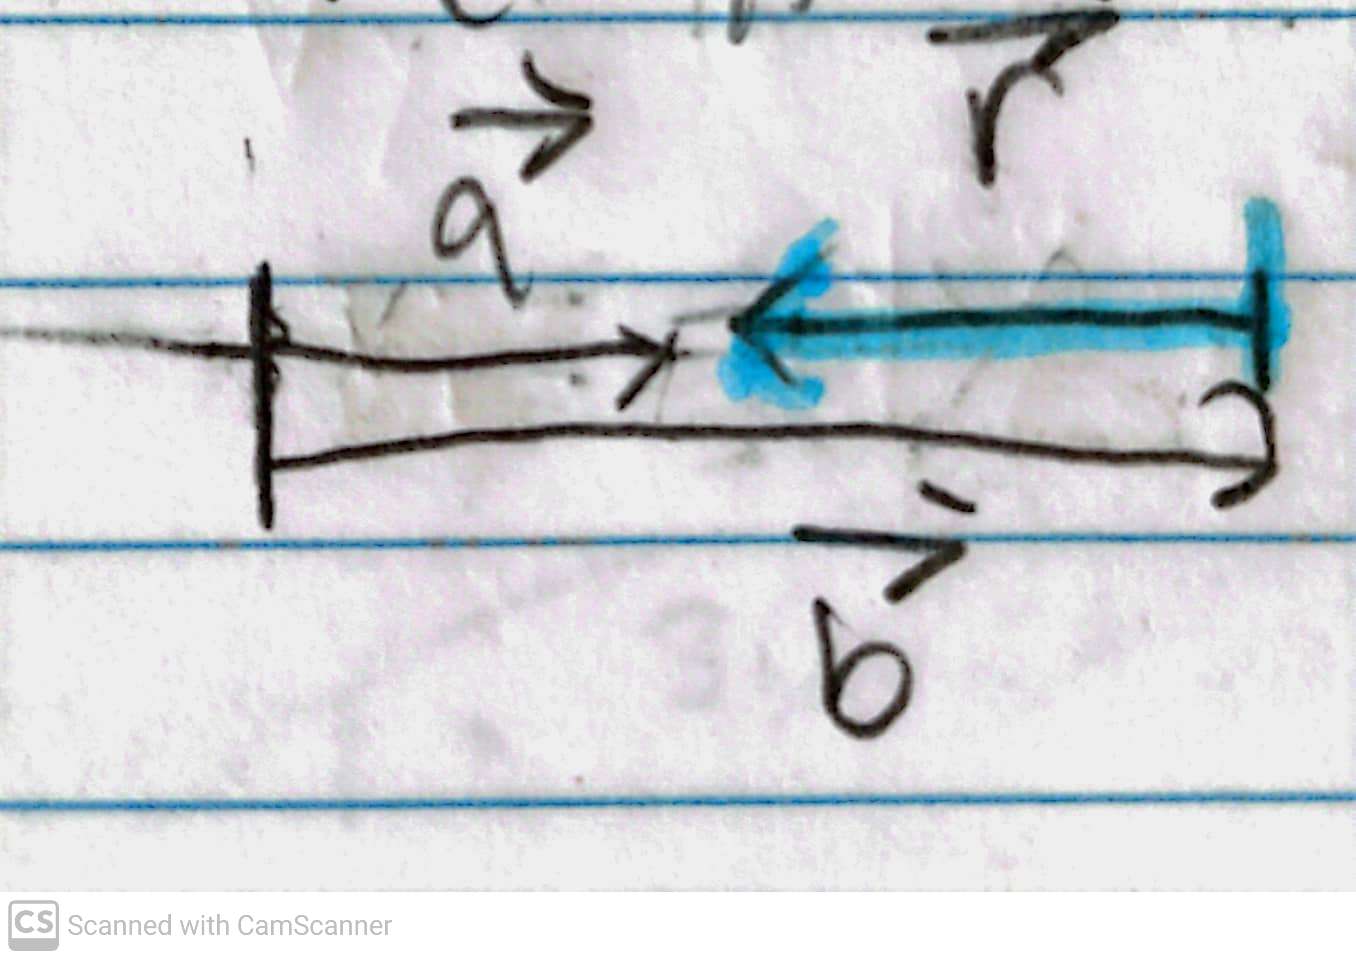 a r
b
CS Scanned with CamScanner